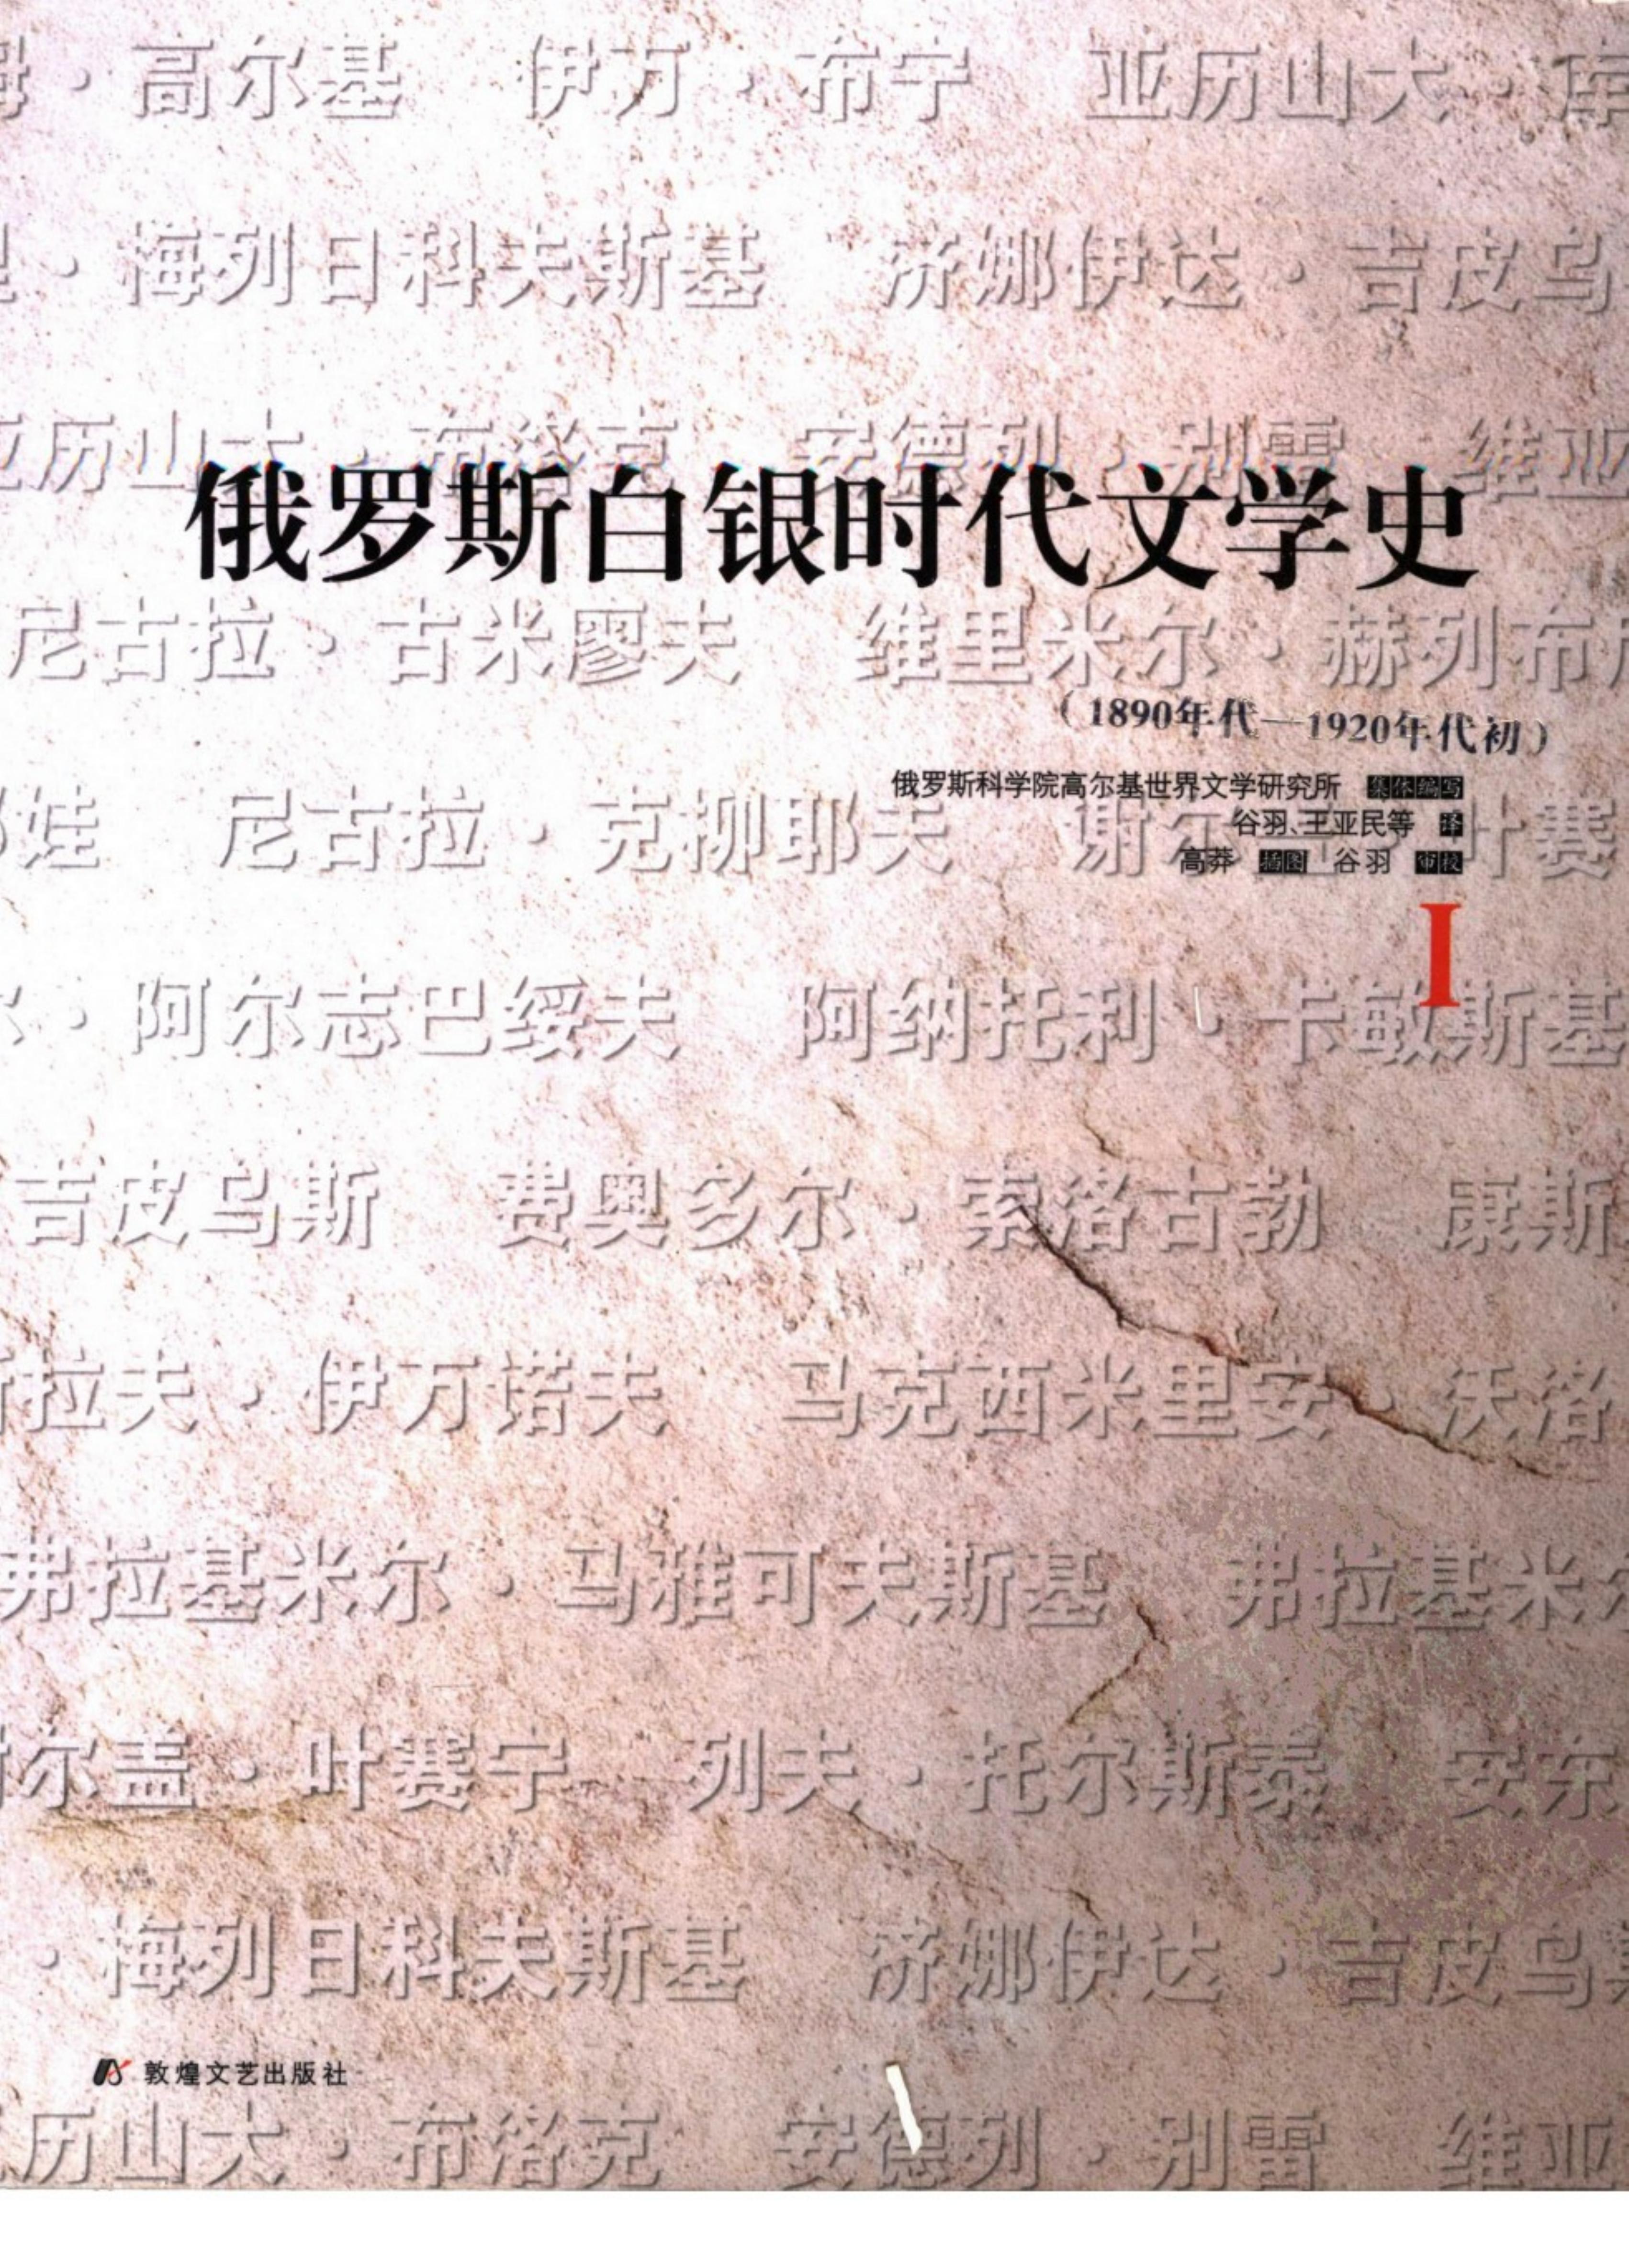 姆·高尔基 伊万·布宁 亚历山大·库
里·梅列日科夫斯基 济娜伊达·吉皮乌
亚历山大·布洛克 安德列·别雷 维亚
俄罗斯白银时代文学史
尼古拉·古米廖夫 维里米尔·赫列布尼
（1890年代—1920年代初）
俄罗斯科学院高尔基世界文学研究所 集体编写
谷羽、王亚民等 译
娃 尼古拉·克柳耶夫 谢尔 叶赛
高莽 插图 谷羽 审校
I
尔·阿尔志巴绥夫 阿纳托利·卡敏斯基
吉皮乌斯 费奥多尔·索洛古勃 康斯
斯拉夫·伊万诺夫 马克西米里安·沃洛
弗拉基米尔·马雅可夫斯基 弗拉基米尔
谢尔盖·叶赛宁 列夫·托尔斯泰 安东
·梅列日科夫斯基 济娜伊达·吉皮乌斯
敦煌文艺出版社
历山大·布洛克 安德列·别雷 维亚